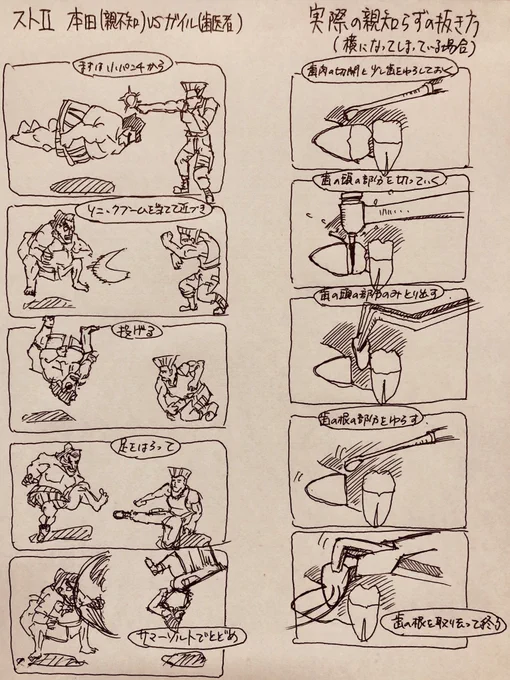 ストII 本田(親不知)VSガイル(歯医者)
まずは小パンチから
ソニックブームを当てて近づき
投げる
足をはらって
サマーソルトでとどめ
実際の親知らずの抜き方
(横になってしまっている場合)
歯肉の切開と少し歯をゆらしておく
歯の頭の部分を切っていく
歯の頭の部分のみとり出す
歯の根の部分をゆらす
歯の根を取り去って終る